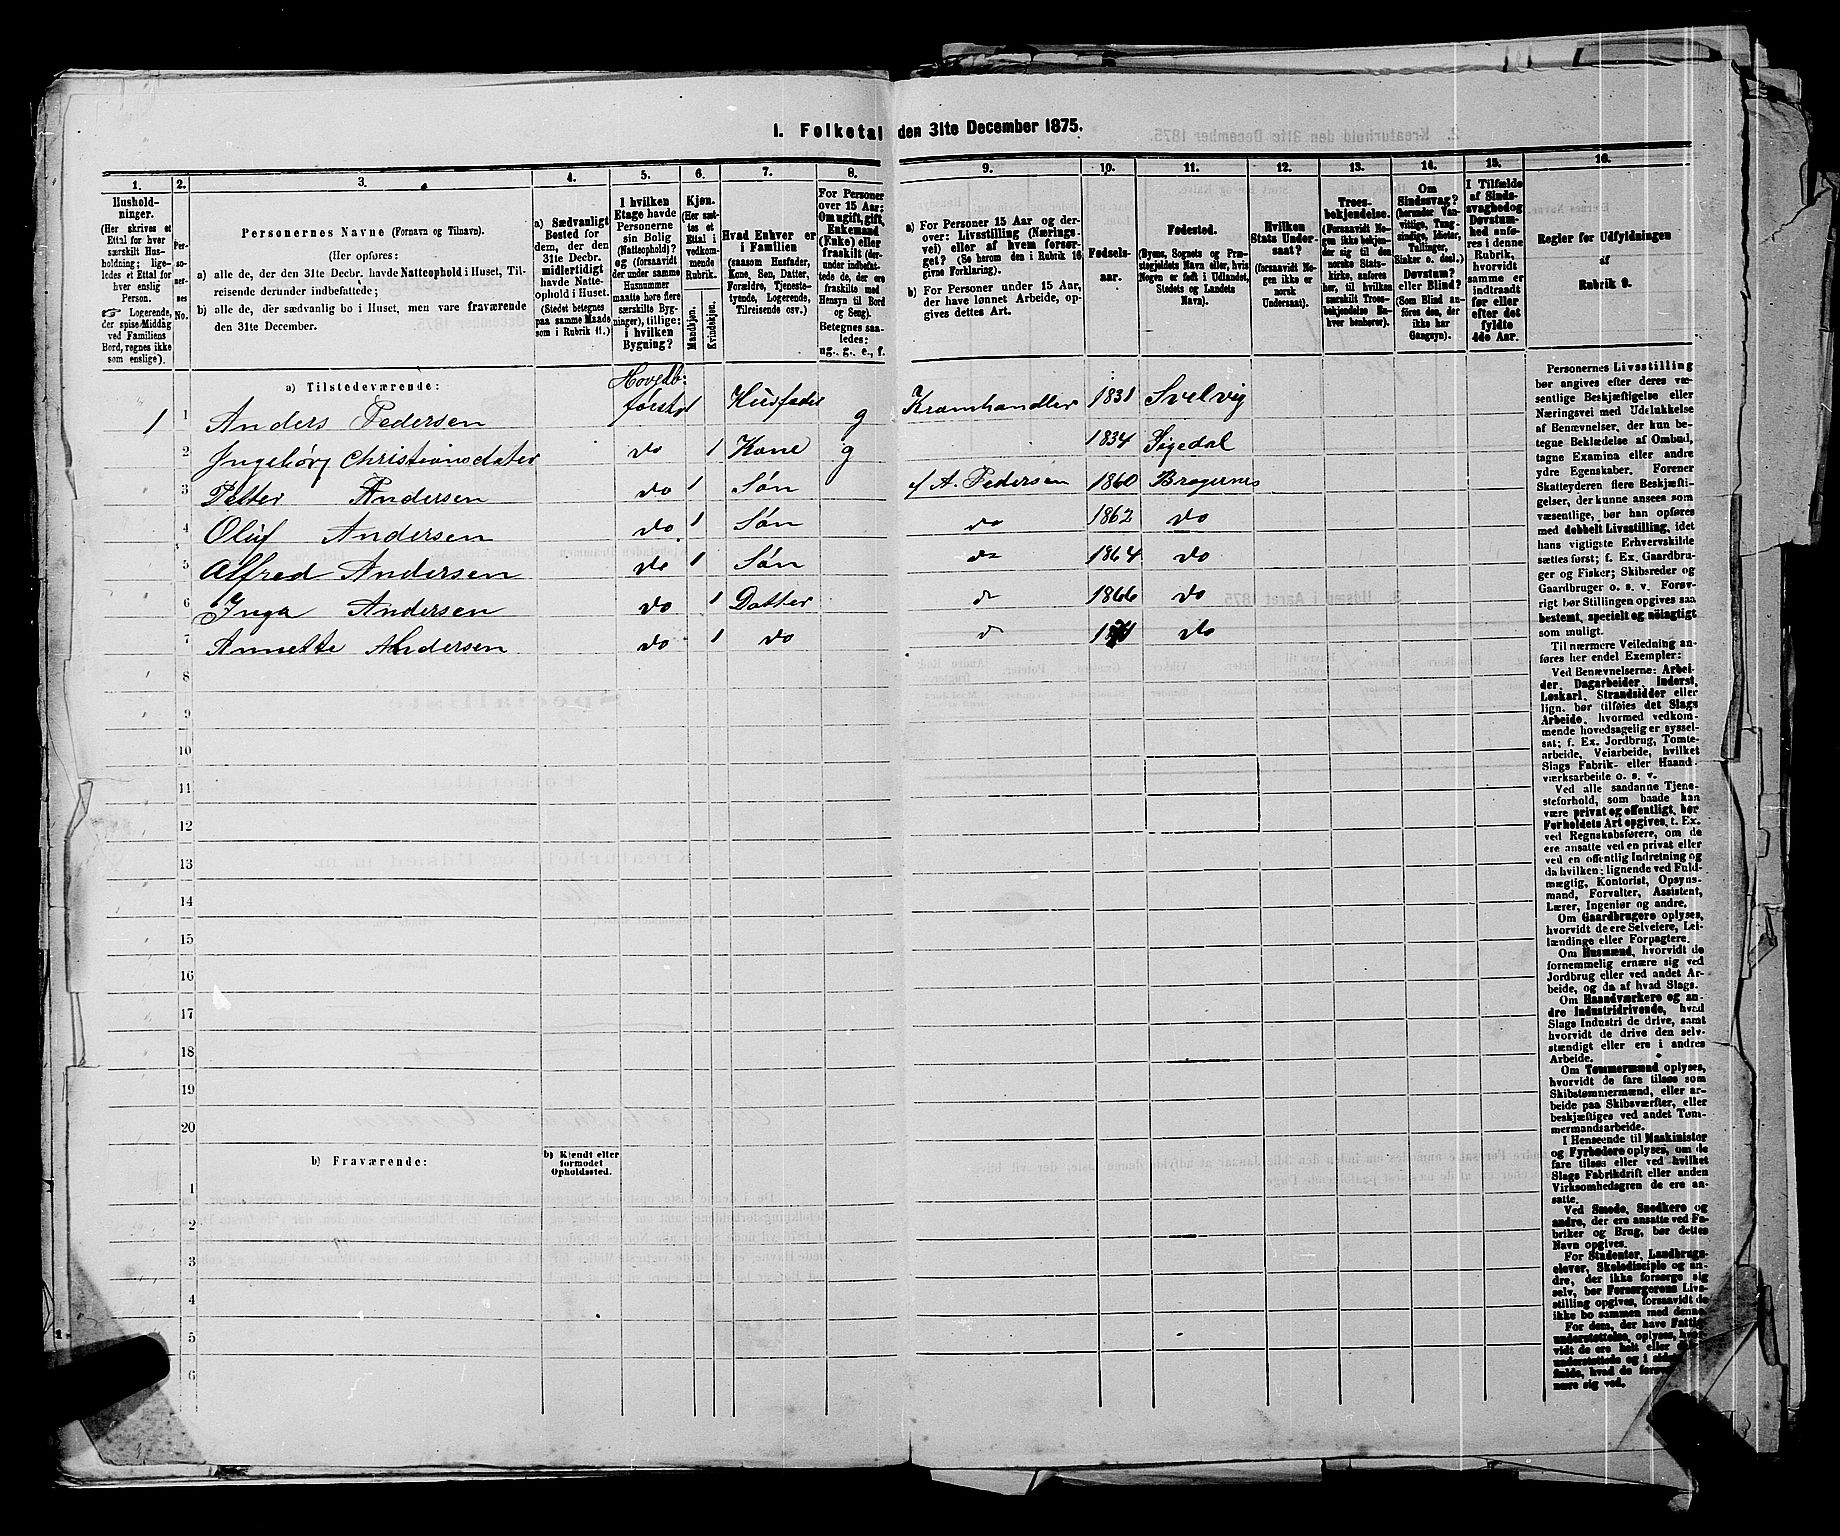 1. Folketal den 31te December 1875.
1. 2. 3. 4. 5. 6. 7. 8. 9. 10. 11. 12. 13. 14. 15. 16.
Hushold-
ninger.
(Her skrives et
Ettal for hver
særskilt Hus-
holdning; lige-
ledes et Ettal for
hver enslig
Person.
☞ Logerende,
der spise Middag
ved Familiens
Bord, regnes ikke
som enslige).
Per-
so-
ner-
nes
No.
Personernes Navne (Fornavn og Tilnavn).
(Her opføres:
a) alle de, der den 31te Decbr. havde Natteophold i Huset, Til-
reisende derunder indbefattede;
b) alle de, der sædvanlig bo i Huset, men vare fraværende
den 31te December.
a) Sædvanligt
Bosted for
dem, der den
31te Decbr.
midlertidigt
havde Natte-
ophold i Huset.
(Stedet betegnes
paa samme Maade
som i Rubrik 11.)
I hvilken
Etage havde
Personerne
sin Bolig
(Natteophold)?
og (forsaavidt
der under samme
Husnummer
maatte høre flere
særskilte Byg-
ninger), tillige:
i hvilken
Bygning?
Kjøn.
(Her sæt-
tes et
Ettal i
vedkom-
mende
Rubrik.
Mandkjøn.
Kvindekjøn.
Hvad Enhver er
i Familien
(saasom Husfader,
Kone, Søn, Datter,
Forældre, Tjeneste-
tyende, Logerende,
Tilreisende osv.)
For Personer
over 15 Aar:
Om ugift, gift,
Enkemand
(Enke) eller
fraskilt (der-
under indbefat-
tede de, der ere
fraskilte med
Hensyn til Bord
og Seng).
Betegnes saa-
ledes:
ug., g., e., f.
a) For Personer 15 Aar og der-
over: Livsstilling (Nærings-
vei) eller af hvem forsør-
get? (Se herom den i Rubrik 16
givne Forklaring).
b) For Personer under 15 Aar,
der have lønnet Arbeide, op-
gives dettes Art.
Fødsels-
aar.
Fødested.
(Byens, Sognets og Præ-
stegjeldets Navn eller, hvis
Nogen er født i Udlandet,
Stedets og Landets
Navn).
Hvilken
Stats Under-
saat?
(forsaavidt No-
gen ikke er
norsk
Undersaat).
Troes-
bekjendelse.
(Forsaavidt No-
gen ikke beken-
der sig til den
norske Stats-
kirke, anføres
her, til hvilken
særskilt Troes-
bekjendelse En-
hver henhører).
Om
Sindssvag?
(herunder Van-
vittige, Tung-
sindige, Idioter,
Tullinger,
Sinker o. desl.)
Døvstum?
eller Blind?
(Som Blind an-
føres den, der
ikke har
Gangsyn).
I Tilfælde
af Sinds-
svaghed og
Døvstum-
hed anfø-
res i denne
Rubrik,
hvorvidt
samme er
indtraadt
før eller
efter det
fyldte
4de Aar.
Regler for Udfyldningen
af
Rubrik 9.
a) Tilstedeværende:
1 1 Anders Pedersen Hovedb: første 1 Husfader g Kramhandler 1831 Svelvig
2 Ingeborg Christiansdater do 1 Kone g 1834 Sigedal
3 Petter Andersen do 1 Søn f A. Pedersen 1860 Bragernes
4 Oluf Andersen do 1 Søn do 1862 do
5 Alfred Andersen do 1 Søn do 1864 do
6 Inga Andersen do 1 Datter do 1866 do
7 Annette Andersen do 1 do do 1871 do
8
9
10
11
12
13
14
15
16
17
18
19
20
b) Fraværende:
b) Kjendt eller
formodet
Opholdssted.
1
2
3
4
5
6
Personernes Livsstilling
bør angives efter deres væ-
sentlige Beskjæftigelse eller
Næringsvei med Udelukkelse
af Benævnelser, der kun be-
tegne Beklædelse af Ombud,
tagne Examina eller andre
ydre Egenskaber. Forener
Skatteyderen flere Beskjæfti-
gelser, der kunne ansees som
væsentlige, bør han opføres
med dobbelt Livsstilling, idet
hans vigtigste Erhvervskilde
sættes først; f. Ex. Gaardbru-
ger og Fisker; Skibsreder og
Gaardbruger o. s. v. Forøv-
rigt bør Stillingen opgives saa
bestemt, specielt og nøiagtigt
som muligt.
Til nærmere Veiledning an-
føres her endel Exempler:
Ved Benævnelserne: Arbei-
der, Dagarbeider, Inderst,
Løskarl, Strandsidder eller
lign. bør tilføies det Slags
Arbeide, hvormed vedkom-
mende hovedsagelig er syssel-
sat; f. Ex. Jordbrug, Tomte-
arbeide, Veiarbeide, hvilket
Slags Fabrik- eller Haand-
værksarbeide o. s. v.
Ved alle saadanne Tjene-
steforhold, som baade kan
være privat og offentligt, bør
Forholdets Art opgives, f. Ex.
ved Regnskabsførere, om de
ere ansatte ved en privat eller
ved en offentlig Indretning og
da hvilken; lignende ved Fuld-
mægtig, Kontorist, Opsyns-
mand, Forvalter, Assistent,
Lærer, Ingeniør og andre.
Om Gaardbrugere oplyses,
hvorvidt de ere Selveiere, Lei-
lændinge eller Forpagtere.
Om Husmænd, hvorvidt de
fornemmelig ernære sig ved
Jordbrug eller ved andet Ar-
beide, og da af hvad Slags.
Om Haandværkere og an-
dre Industridrivende, hvad
Slags Industri de drive, samt
hvorvidt de drive den selv-
stændigt eller ere i andres
Arbeide.
Om Tømmermænd oplyses,
hvorvidt de fare tilsøs som
Skibstømmermænd, eller ar-
beide paa Skibsværfter, eller
beskjæftiges ved andet Tøm-
mermandsarbeide.
I Henseende til Maskinister
og Fyrbødere oplyses, om de
fare tilsøs eller ved hvilket
Slags Fabrikdrift eller anden
Virksomhedsgren de ere an-
satte.
Ved Smede, Snedkere og
andre, der ere ansatte ved Fa-
briker og Brug, bør dettes
Navn opgives.
For Studenter, Landbrugs-
elever, Skoledisciple og an-
dre, der ikke forsørge sig
selv, bør Forsørgerens Livs-
stilling opgives, forsaavidt de
ikke bo sammen med denne.
For dem, der have Fattig-
understøttelse, oplyses, hvor-
vidt de ere helt eller
understøttede og i